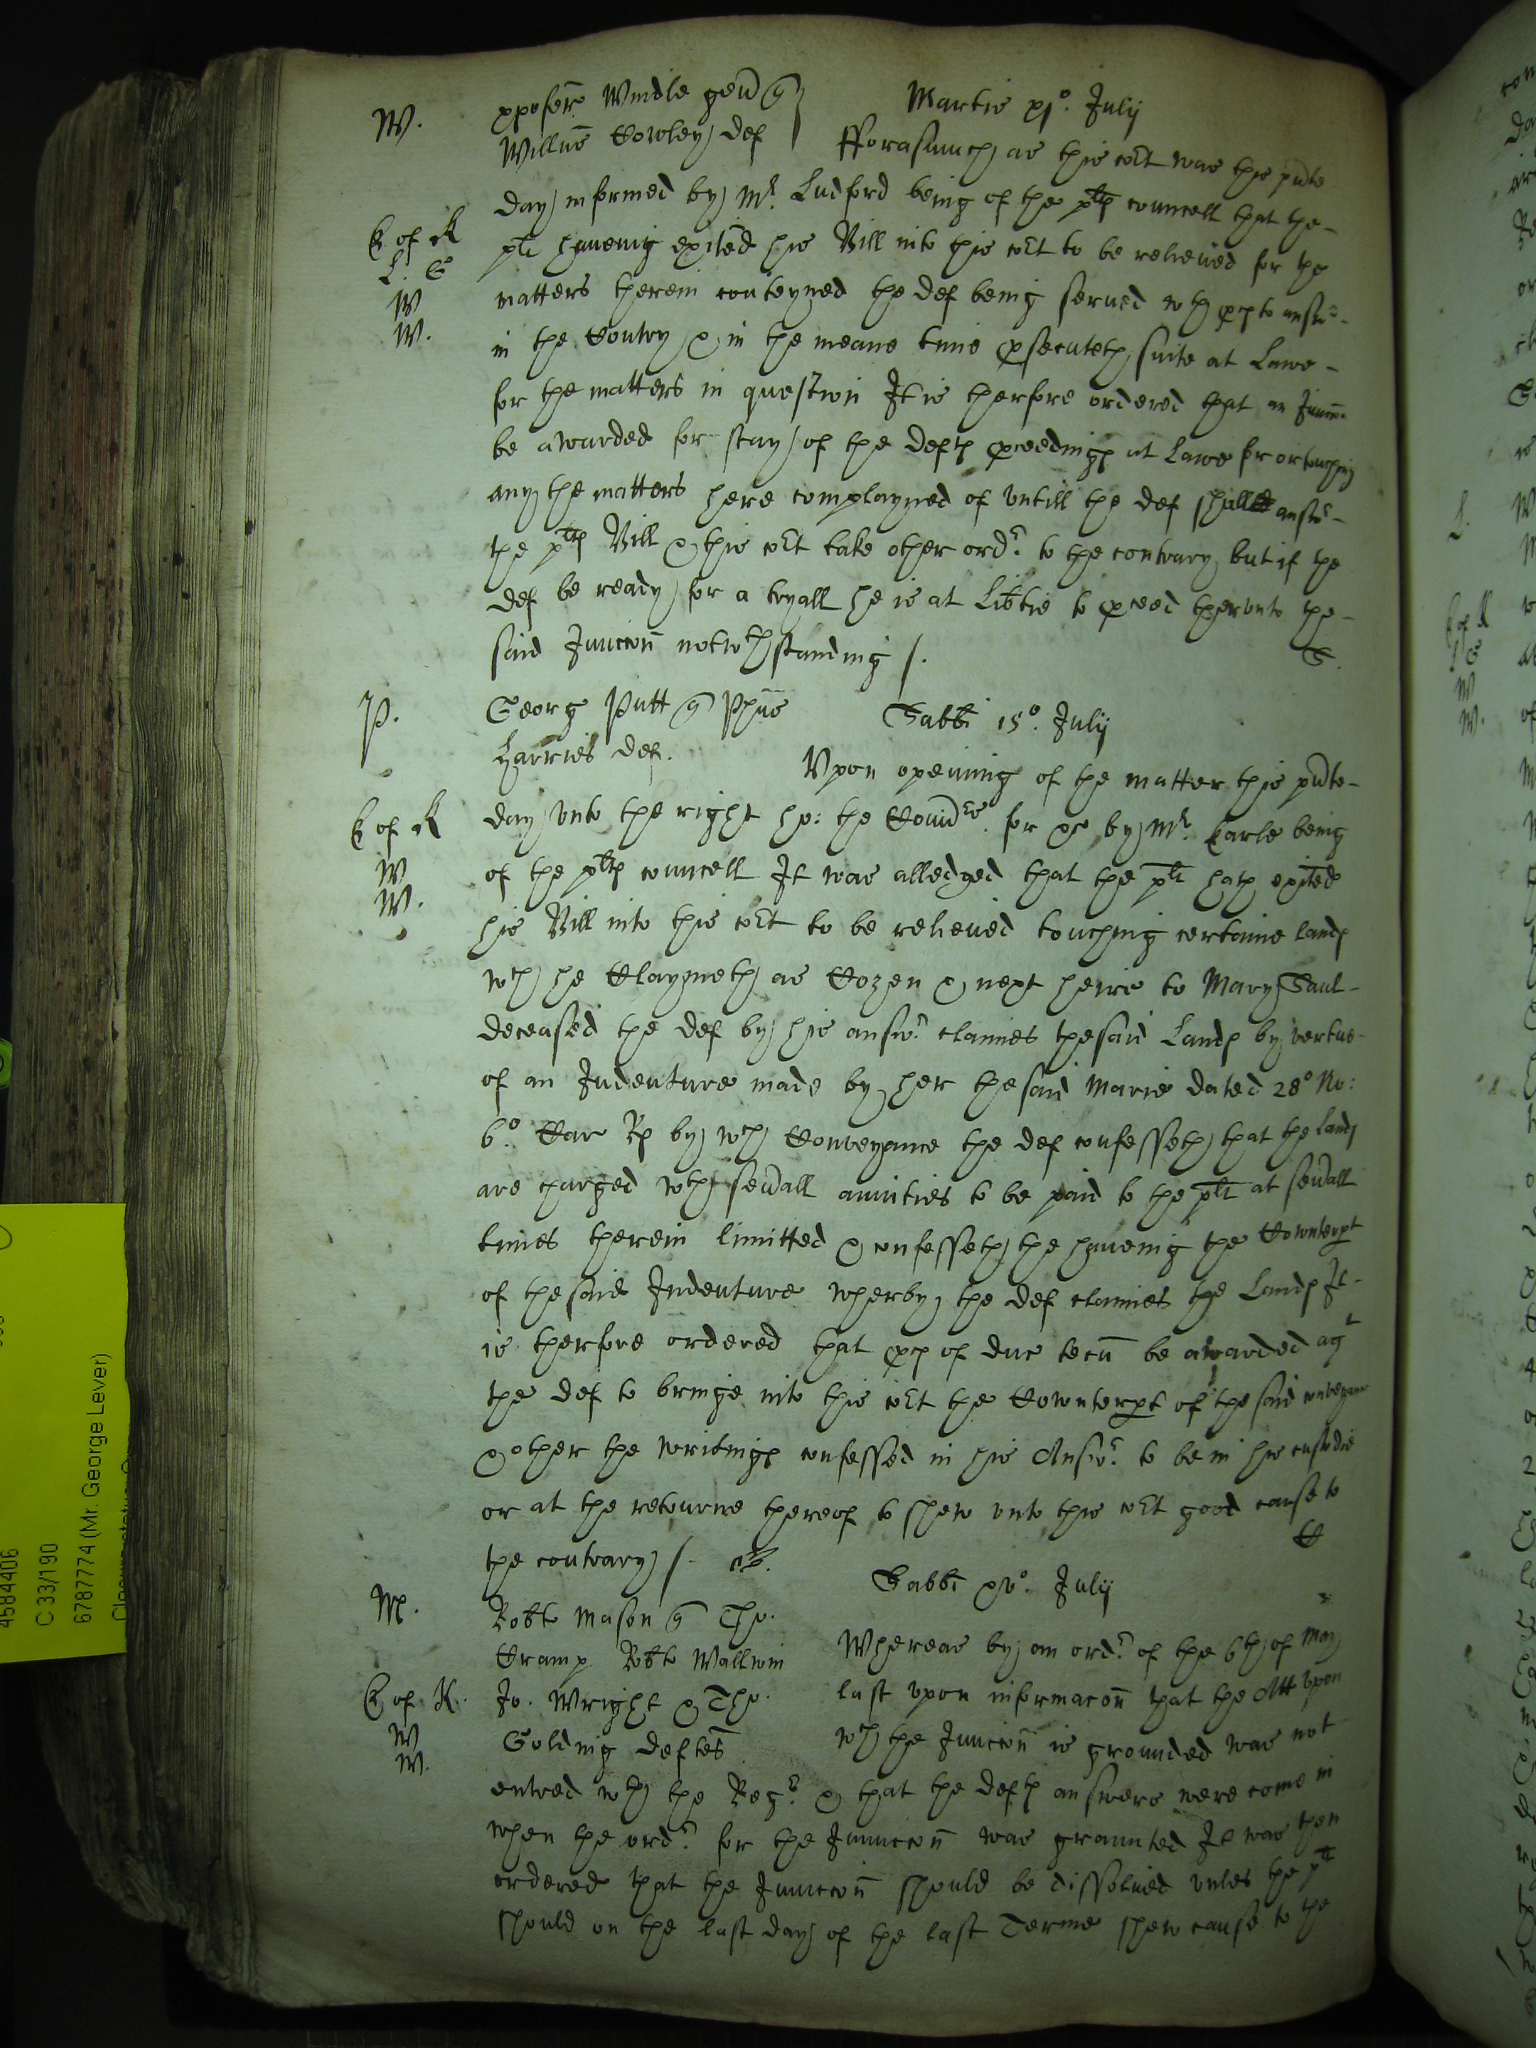 W. xpofer Windle gen q Martis xj°. Julij
Willus Cowley def fforasmuch as this co:t was this pnte
day informed by Mr. Ludford being of the pltes councell that the
E of R plt haveing exited his Bill into this co:t to be relieved for the
L. G matters therein conteyned the def being served wth to answ
W in the Contry & in the meane time psecuteth suite at Lawe
W. for the matters in question It is therfore ordered that an Juncc
be awarded for stay of the deftes pceedinges at Lawe for or touching
any the matters here complayned of untill the def shall answ
the pltes Bill & this co:t take other ordr. to the contrary but if the
def be ready for a tryall he is at Libtie to pceed therunto the
said Junccon notwthstanding /.
P. Georg Putt q Phus Sabbi 15°. Julij
Harries def. Upon opening of the matter this pnte
E of R day unto the right ho: the for by Mr. Earle being
W of the pltes councell It was alledged that the plt hath exited
W. his Bill into this co:t to be relieved touching certaine landes
wch he Claymeth as Cozen & next heire to Mary
deceased the def by his answr. claimes the said Landes by vertue
of an Indenture made by her the said Marie dated 28° No:
6°. Car Rs by wch Conveyance the def confesseth that the landes
are charged wth sevall anuities to be paid to the plt at sevall
times therein limitted & confesseth the haveing the Counterpt
of the said Indenture wherby the def claimes the Landes It
is therfore ordered that of duc tecu be awarded agt
the def to bringe into this co:t the Counterpt of the said conveyance
& other the writinges confessed in his Answr. to be in his custodie
or at the retourne thereof to shew unto this co:t good cause to
the contrary /.
Sabbi xv°. Julij
M. Robte Mason q Tho.
Cramp Robte Wallwin Whereas by an ordr. of the 6th of May
E of R. Jo. Wright & Tho. last upon informacon that the Att upon
W Golding deftes wch the Junccon is grounded was not
W. entred wth the Regr. & that the deftes answers were come in
when the ordr. for the Junccon was graunted It was then
ordered that the Junccon should be dissolved unles the plt
should on the last day of the last Terme shew cause to the
4584406
C 33/190
6787774 (Mr. George Lever)